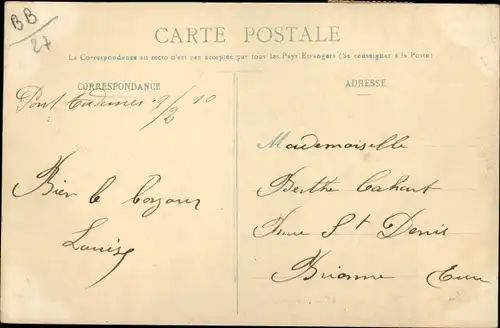 BB
27
CARTE POSTALE
La Correspondance au recto n'est pas acceptée par tous les Pays Etrangers (Se renseigner à la Poste)
CORRESPONDANCE
Pont Audemer 9/2 10
Bien le bonjour
Louise
ADRESSE
Mademoiselle
Berthe Cahart
Rue St Denis
Brionne Eure